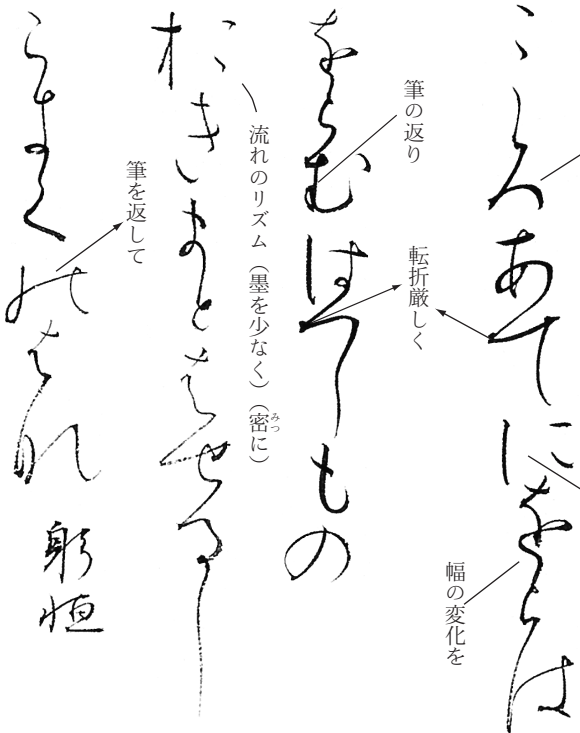 こゝろあてにをらは
幅の変化を
転折厳しく
筆の返り
をらむはつしもの
流れのリズム（墨を少なく）（密に）
みつ
おきまとはせるし
筆を返して
らきくのはな
躬恒